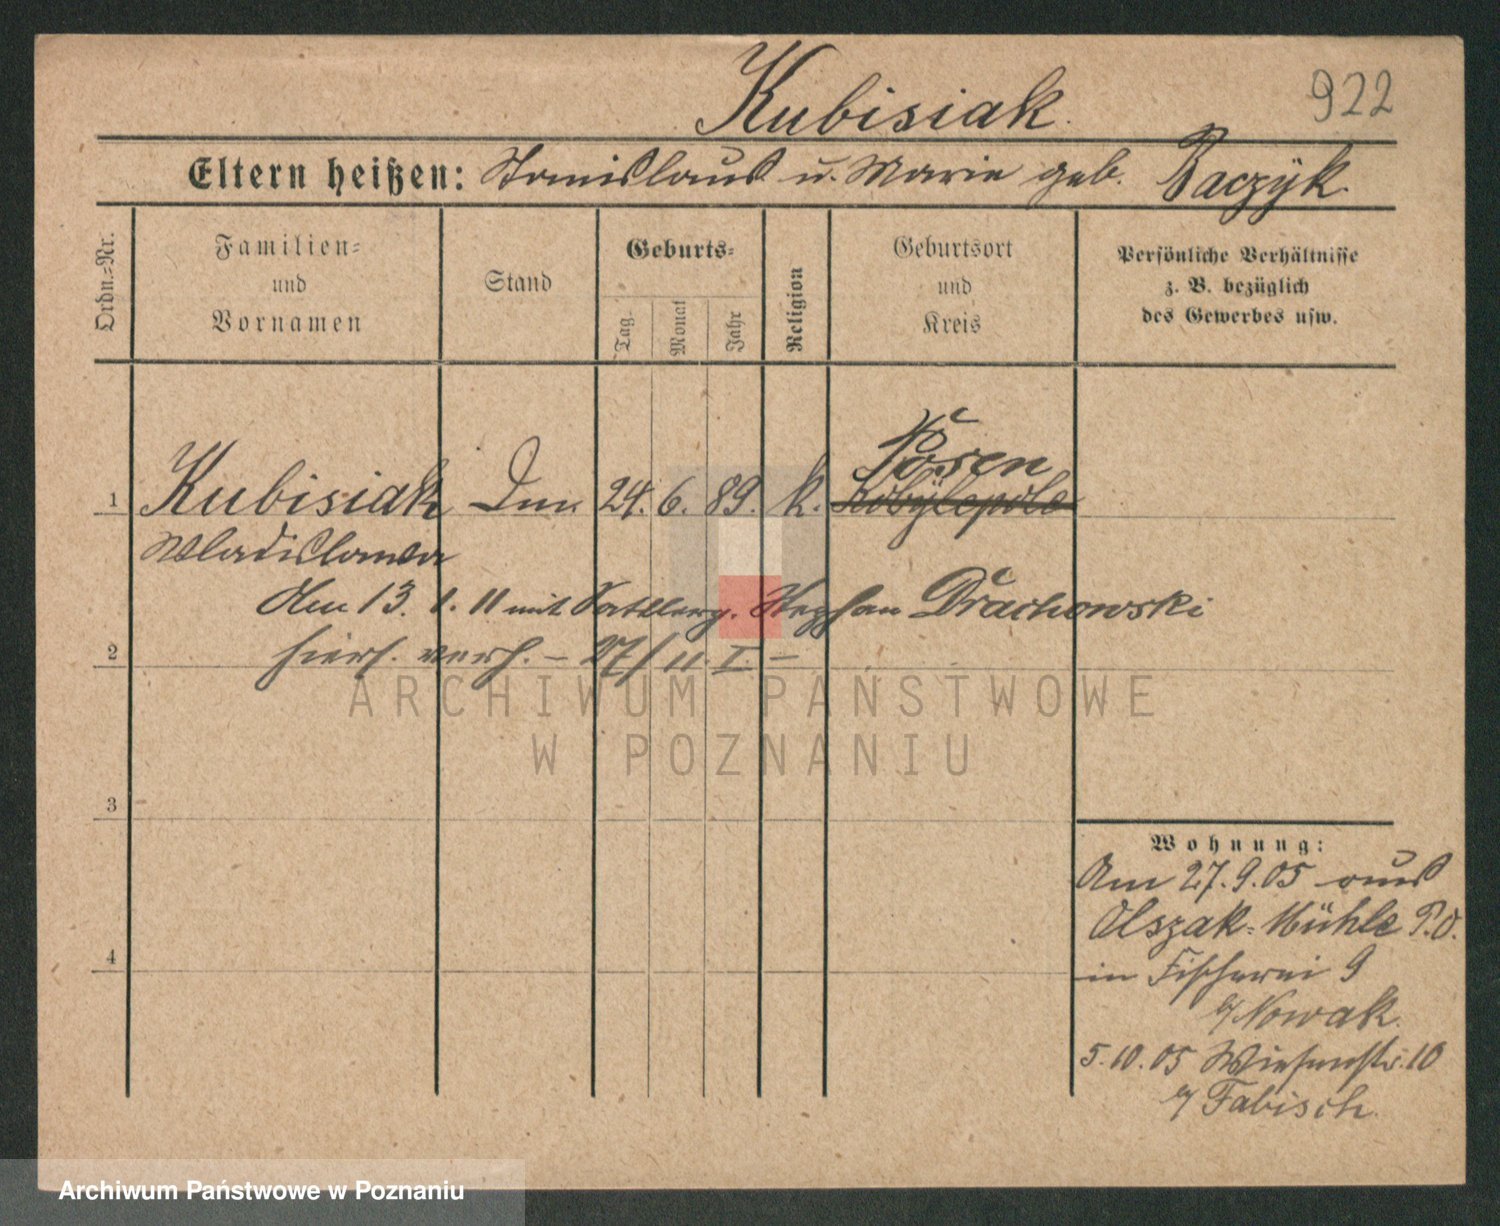 Kubisiak.
922
Eltern heißen: Stanislaus u. Marie geb. Baczyk.
Ordn.-Nr.
Familien- und Vornamen
Stand
Geburts-
Tag.
Monat
Jahr
Religion
Geburtsort und Kreis
Persönliche Verhältnisse z. B. bezüglich des Gewerbes usw.
Posen
1 Kubisiak 24. 6. 89. k. Kobylepole
Wladislawa
Am 13. 1. 11 mit Sattlerg. Stephan Drachowski
2 hiers. verh. – 27/11. I. –
ARCHIWUM PAŃSTWOWE
W POZNANIU
3
Wohnung:
Am 27.9.05 aus
Olszak-Mühle P.O.
4 in Fischerei 9
b/ Nowak.
5.10.05 Wiesenstr. 10
b/ Fabisch.
Archiwum Państwowe w Poznaniu